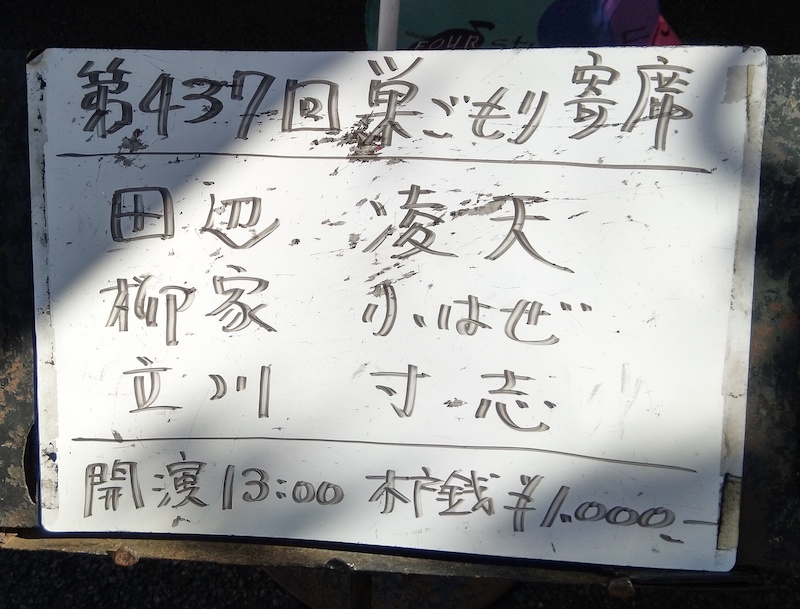 FOUR
第437回 巣ごもり寄席
田辺 凌天
柳家 小はぜ
立川 寸志
開演13:00 木戸銭¥1,000-